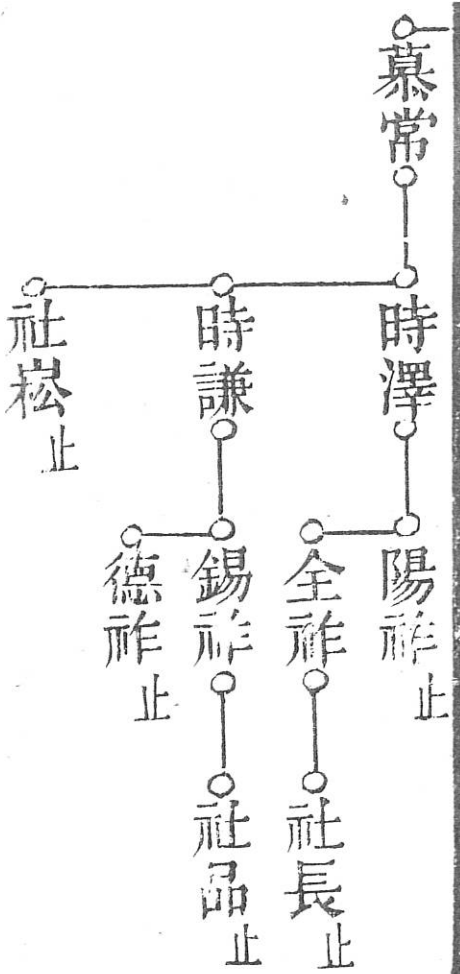 慕常
時澤
時謙
社崧止
陽祚止
全祚
錫祚
德祚止
社長止
社品止